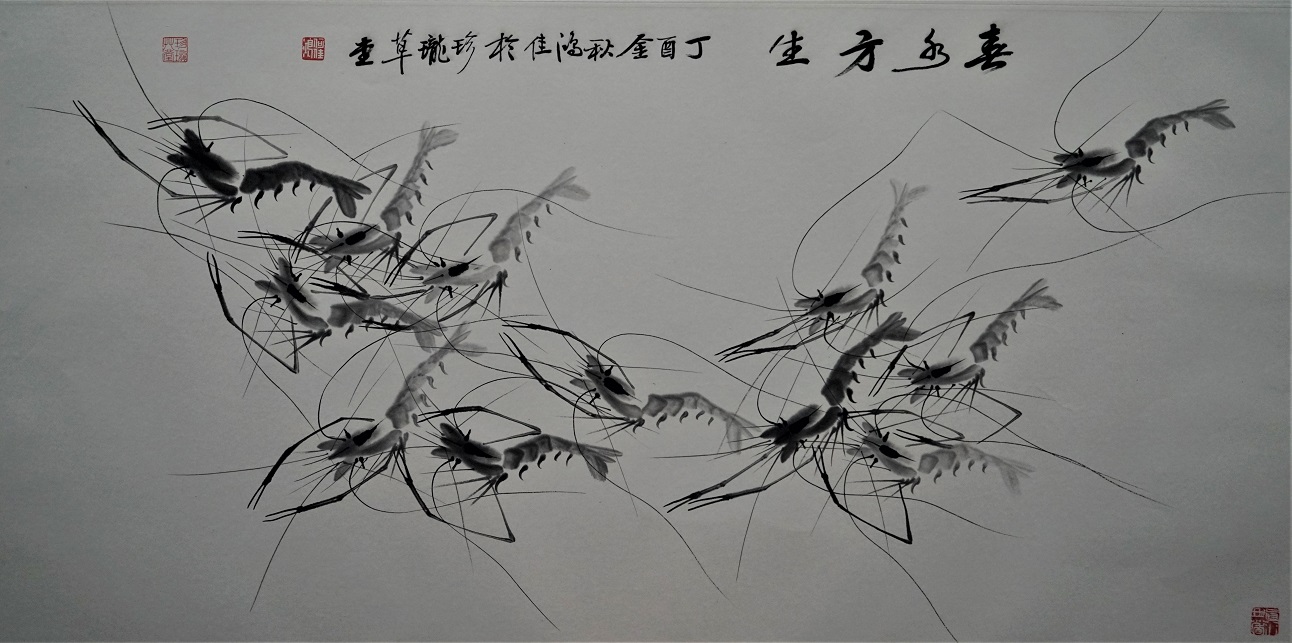 春水方生 丁酉金秋鴻佳於珍瓏草堂